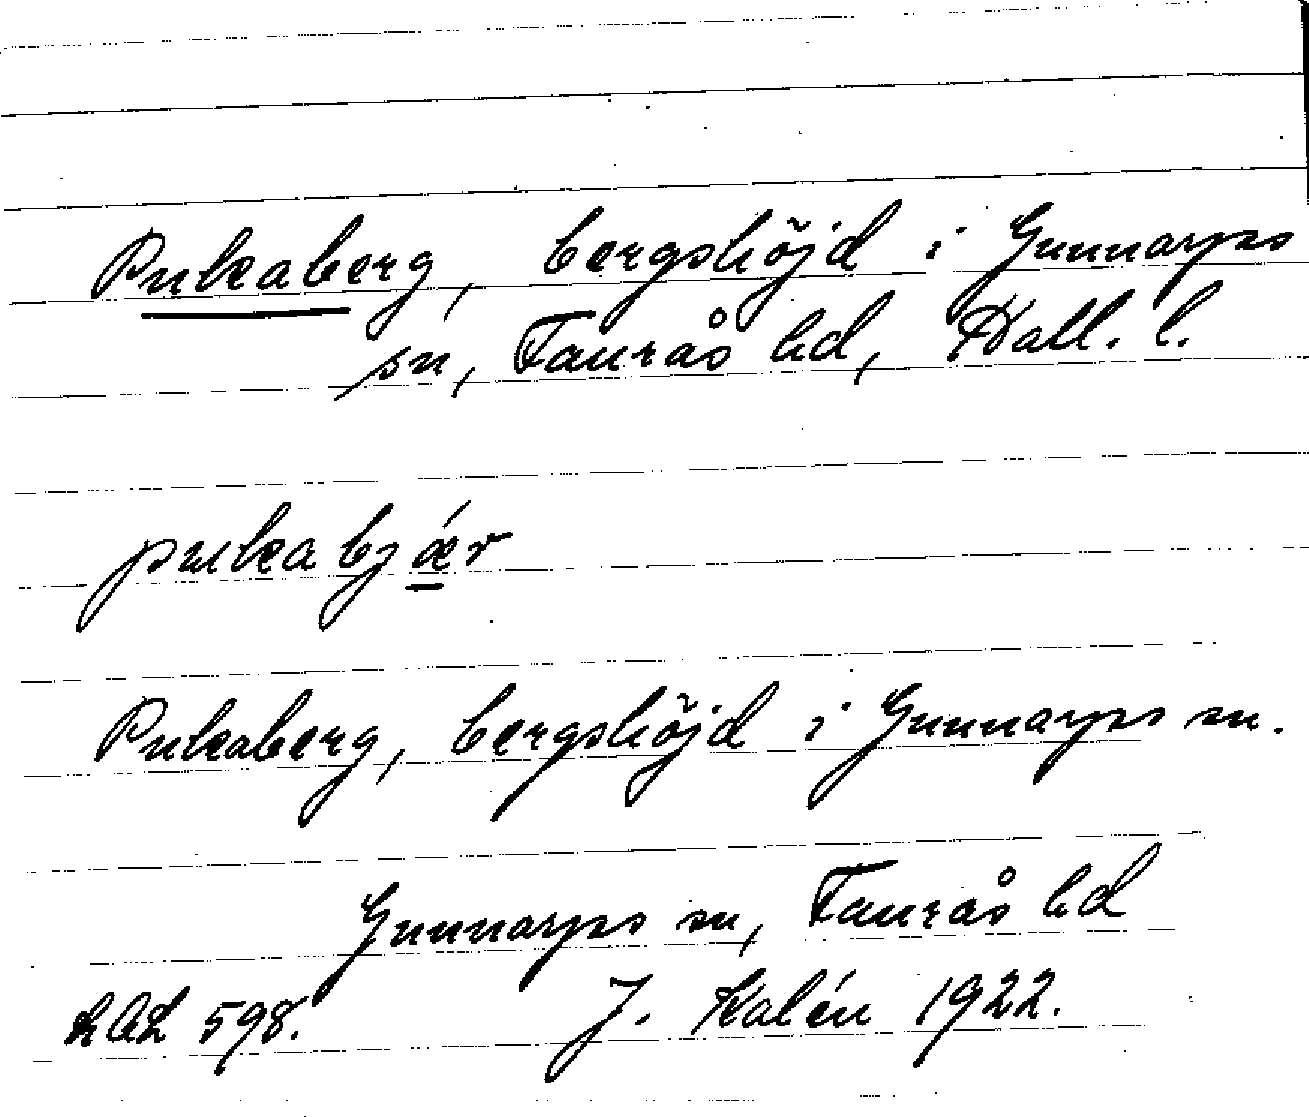 Pukaberg, bergshöjd i Gunnarps
sn, Faurås hd, Hall. l.
puka bjǽr
Pukaberg, bergshöjd i Gunnarps sn.
Gunnarps sn, Faurås hd
LAL 598. J. Kalén 1922.